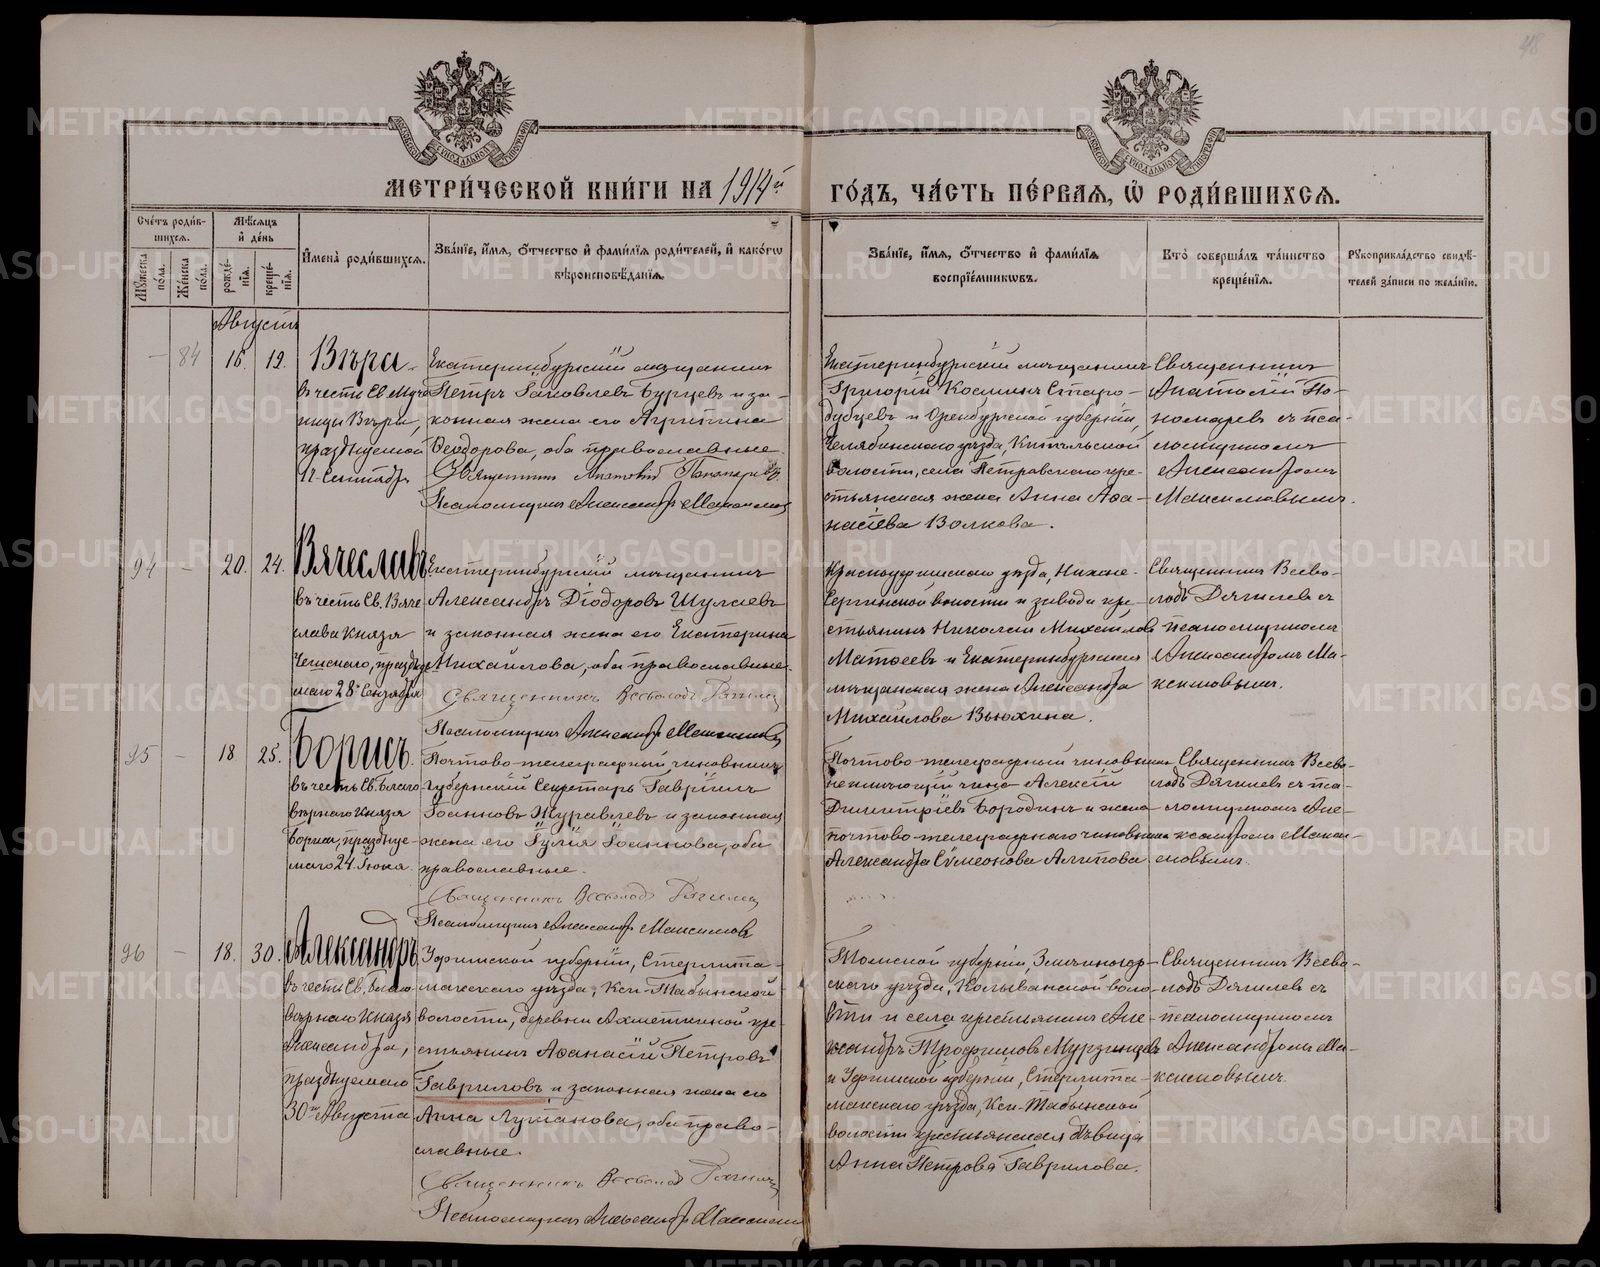 48
МОСКОВСКОЙ СѴНОДАЛЬНОЙ ТИПОГРАФИИ
МОСКОВСКОЙ СѴНОДАЛЬНОЙ ТИПОГРАФИИ
МЕТРИ́ЧЕСКОЙ КНИ́ГИ НА 1914й
ГО́ДЪ, ЧА́СТЬ ПЕ́РВАЯ, Ѡ҆ РОДИ́ВШИХСЯ.
Сче́тъ роди́в-
шихся.
Му́жеска по́ла.
Же́нска по́ла.
Мѣ́сяцъ
и҆ де́нь
рожде́-
нїя.
креще́-
нїя.
И҆мена̀ роди́вшихся.
Зва́нїе, и҆́мя, ѻ҆́тчество и҆ фами́лїя роди́телей, и҆ како́гѡ
вѣроисповѣ́данїя.
Зва́нїе, и҆́мя, ѻ҆́тчество и҆ фами́лїя
воспрїе́мникѡвъ.
Кто̀ соверша́лъ та́инство
креще́нїя.
Рꙋкоприкла́дство свидѣ́-
телей за́писи по жела́нїю.
Августъ
– 84 16. 19.
Вѣра.
въ честь Св. Муче-
ницы Вѣры,
празднуемой
17 Сентября
Екатеринбургскій мѣщанинъ
Петръ Іаковлевъ Бурцевъ и за-
конная жена его
Ѳеодорова, оба православные.
Священникъ Анатолій Пономаревъ.
Псаломщикъ Александръ Максимовъ
Екатеринбургскій мѣщанинъ
Григорій Косминъ Старо-
дубцевъ и Оренбургской губерніи,
Челябинскаго уѣзда,
волости, села Петровскаго кре-
стьянская жена Анна Аѳа-
насіева Волкова.
Священникъ
Анатолій По-
номаревъ съ пса-
ломщикомъ
Александромъ
Максимовымъ.
94 – 20. 24.
Вячеславъ
въ честь Св. Вяче-
слава Князя
Чешскаго, праздну-
емаго 28 Сентября
Екатеринбургскій мѣщанинъ
Александръ Діодоровъ Шулаевъ
и законная жена его Екатерина
Михайлова, оба православные.
Священникъ Всеволодъ Дягилевъ
Псаломщикъ Александръ Максимовъ
Красноуфимскаго уѣзда, Нижне-
Сергинской волости и завода кре-
стьянинъ Николай Михайловъ
Матвеевъ и Екатеринбургская
мѣщанская жена Александра
Михайлова Вьюхина.
Священникъ Всево-
лодъ Дягилевъ съ
псаломщикомъ
Александромъ Ма-
ксимовымъ.
95 – 18 25.
Борисъ.
въ честь Св. Благо-
вѣрнаго Князя
Бориса, праздуе-
маго 24 Іюля.
Почтово-телеграфный чиновникъ
Губернскій Секретарь Гавріилъ
Іоанновъ Журавлевъ и законная
жена его Іулія Іоаннова, оба
православные.
Священникъ Всеволодъ Дягилевъ
Псаломщикъ Александръ Максимовъ
Почтово-телеграфный чиновникъ
неимѣющій чина Алексій
Димитріевъ Бородинъ и жена
почтово-телеграфнаго чиновника
Александра Сѵмеонова Алипова
Священникъ Всево-
лодъ Дягилевъ съ пса-
ломщикомъ Але-
ксандромъ Макси-
мовымъ.
96 – 18. 30.
Александръ
въ честь Св. Благо-
вѣрнаго Князя
Александра,
празднуемаго
30го Августа
Уфимской губерніи, Стерлита-
макскаго уѣзда, Кси-Табынской
волости, деревни Ахметкиной кре-
стьянинъ Аѳанасій Петровъ
Гавриловъ и законная жена его
Анна Лупанова, оба право-
славные.
Священникъ Всеволодъ Дягилевъ
Псаломщикъ Александръ Максимовъ
Томской губерніи, Змѣиногор-
скаго уѣзда, Колыванской воло-
сти и села крестьянинъ Але-
ксандръ Трофимовъ Мурзинцевъ
и Уфимской губерніи, Стерлита-
макскаго уѣзда, Кси-Табынской
волости крестьянская дѣвица
Анна Петрова Гаврилова.
Священникъ Всево-
лодъ Дягилевъ съ
псаломщикомъ
Александромъ Ма-
ксимовымъ.
METRIKI.GASO-URAL.RU